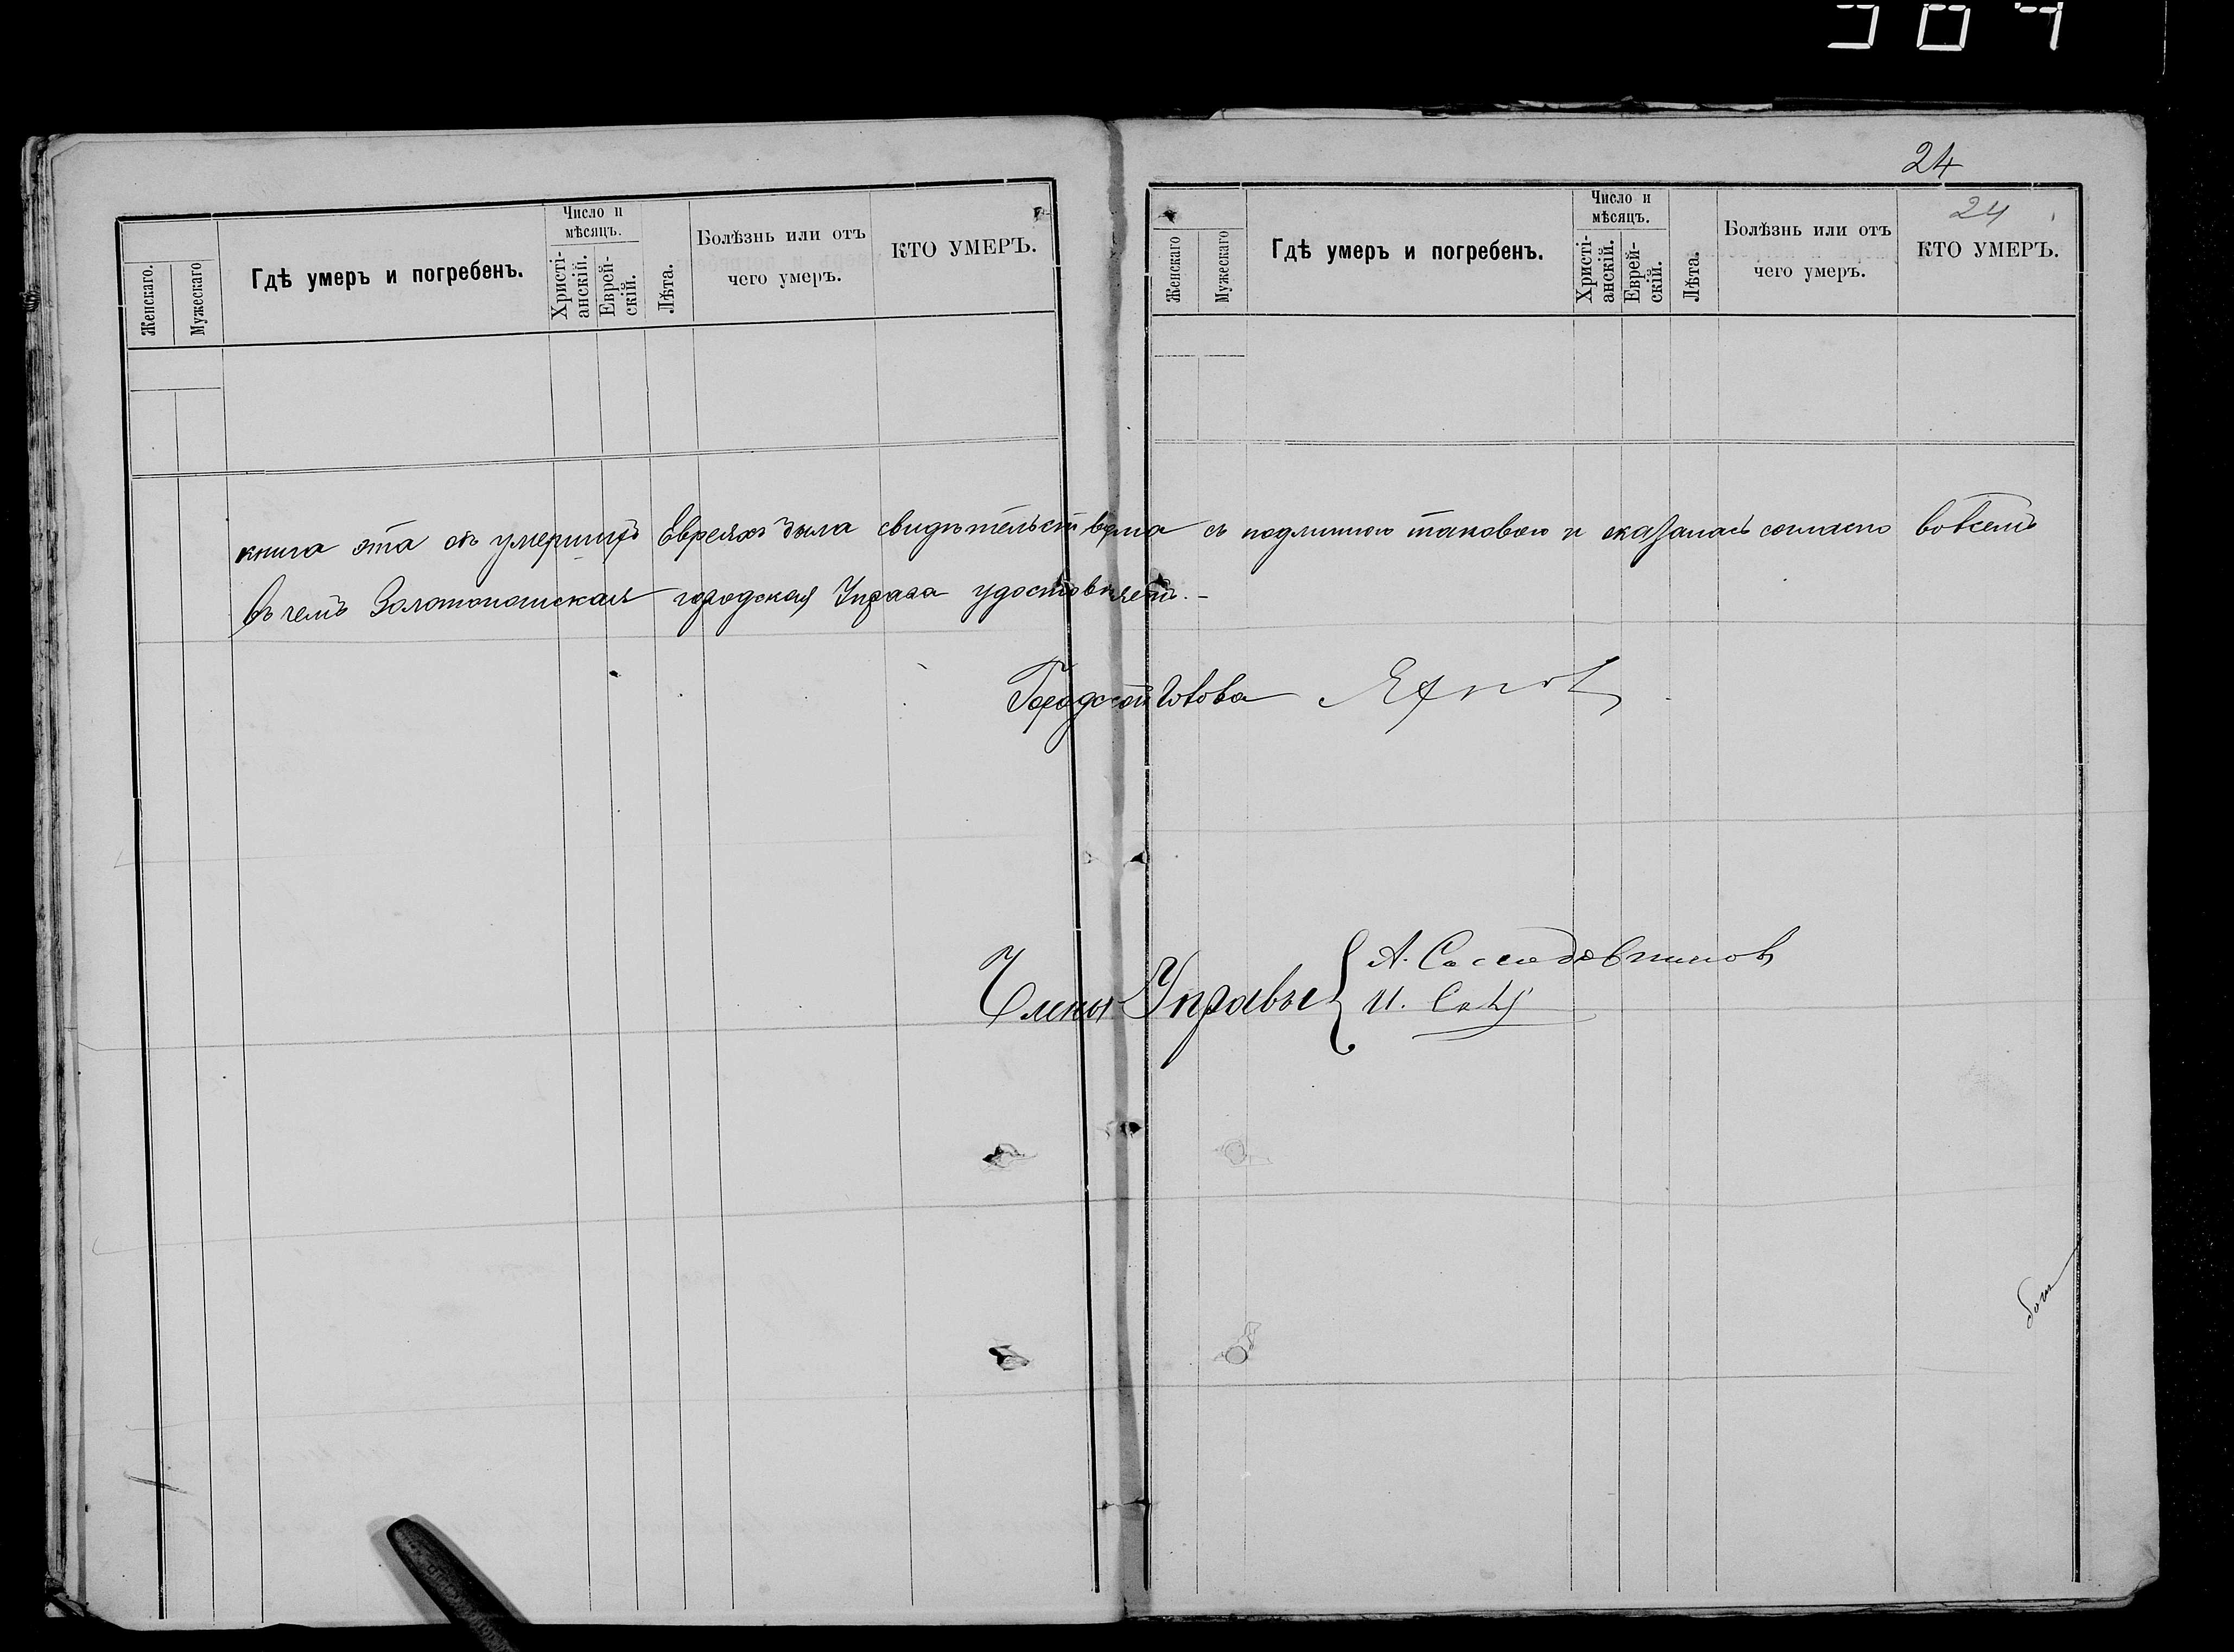 24
Женскаго.
Мужескаго
Гдѣ умеръ и погребенъ.
Число и мѣсяцъ.
Христі-
анскій.
Еврей-
скій.
Лѣта.
Болѣзнь или отъ
чего умеръ.
КТО УМЕРЪ.
Женскаго
Мужескаго
Гдѣ умеръ и погребенъ.
Число и
мѣсяцъ.
Христі-
анскій.
Еврей-
скій.
Лѣта.
Болѣзнь или отъ
чего умеръ.
24
КТО УМЕРЪ.
книга эта объ умершихъ Евреяхъ была свидѣтельствована съ подлинною таковою и оказалась согласно во всемъ
въ чемъ Золотоношская городская Управа удостовѣряетъ.-
Городской Голова
Члены Управы { А.
И.